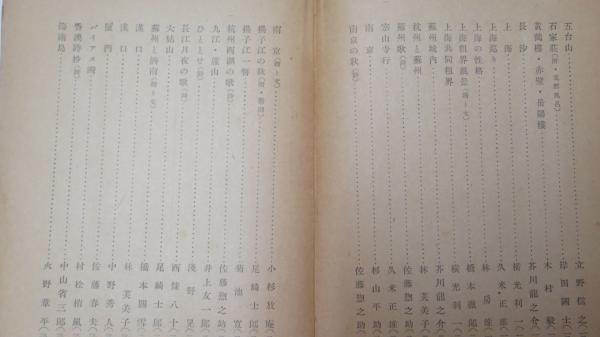 五台山……立野信之
石家荘……岸田國士
黄鶴樓・赤壁・岳陽樓……木村毅
長沙……芥川龍之介
上海……横光利一
上海巡り……久米正雄
上海の性格……林房雄
上海租界風景(繪と文)……橋本
上海共同租界……横光利一
蘇州城内……芥川龍之介
杭州と蘇州……林芙美子
蘇州歌(詩)……佐藤惣之助
寒山寺行……久米正雄
南京……杉山平助
南京の歌(詩)……佐藤惣之助
南京(繪と文)……小杉放庵
揚子江の秋……尾崎士郎
揚子江一瞥……菊池寛
杭州西湖の歌(詩)……佐藤惣之助
九江・廬山……井上友一郎
ひととせ(詩)……淺野晃
長江月夜の歌(詩)……西條八十
大姑山……尾崎士郎
蘇州と濟南(繪と文)……橋本關雪
漢口……林芙美子
漢口
厦門……中野秀人
バイアス灣……佐藤春夫
香澳詩抄(詩)……村松梢風
海南島……中山省三郎
火野葦平